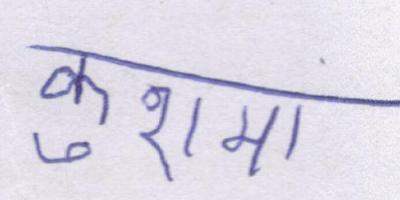 कुशमा